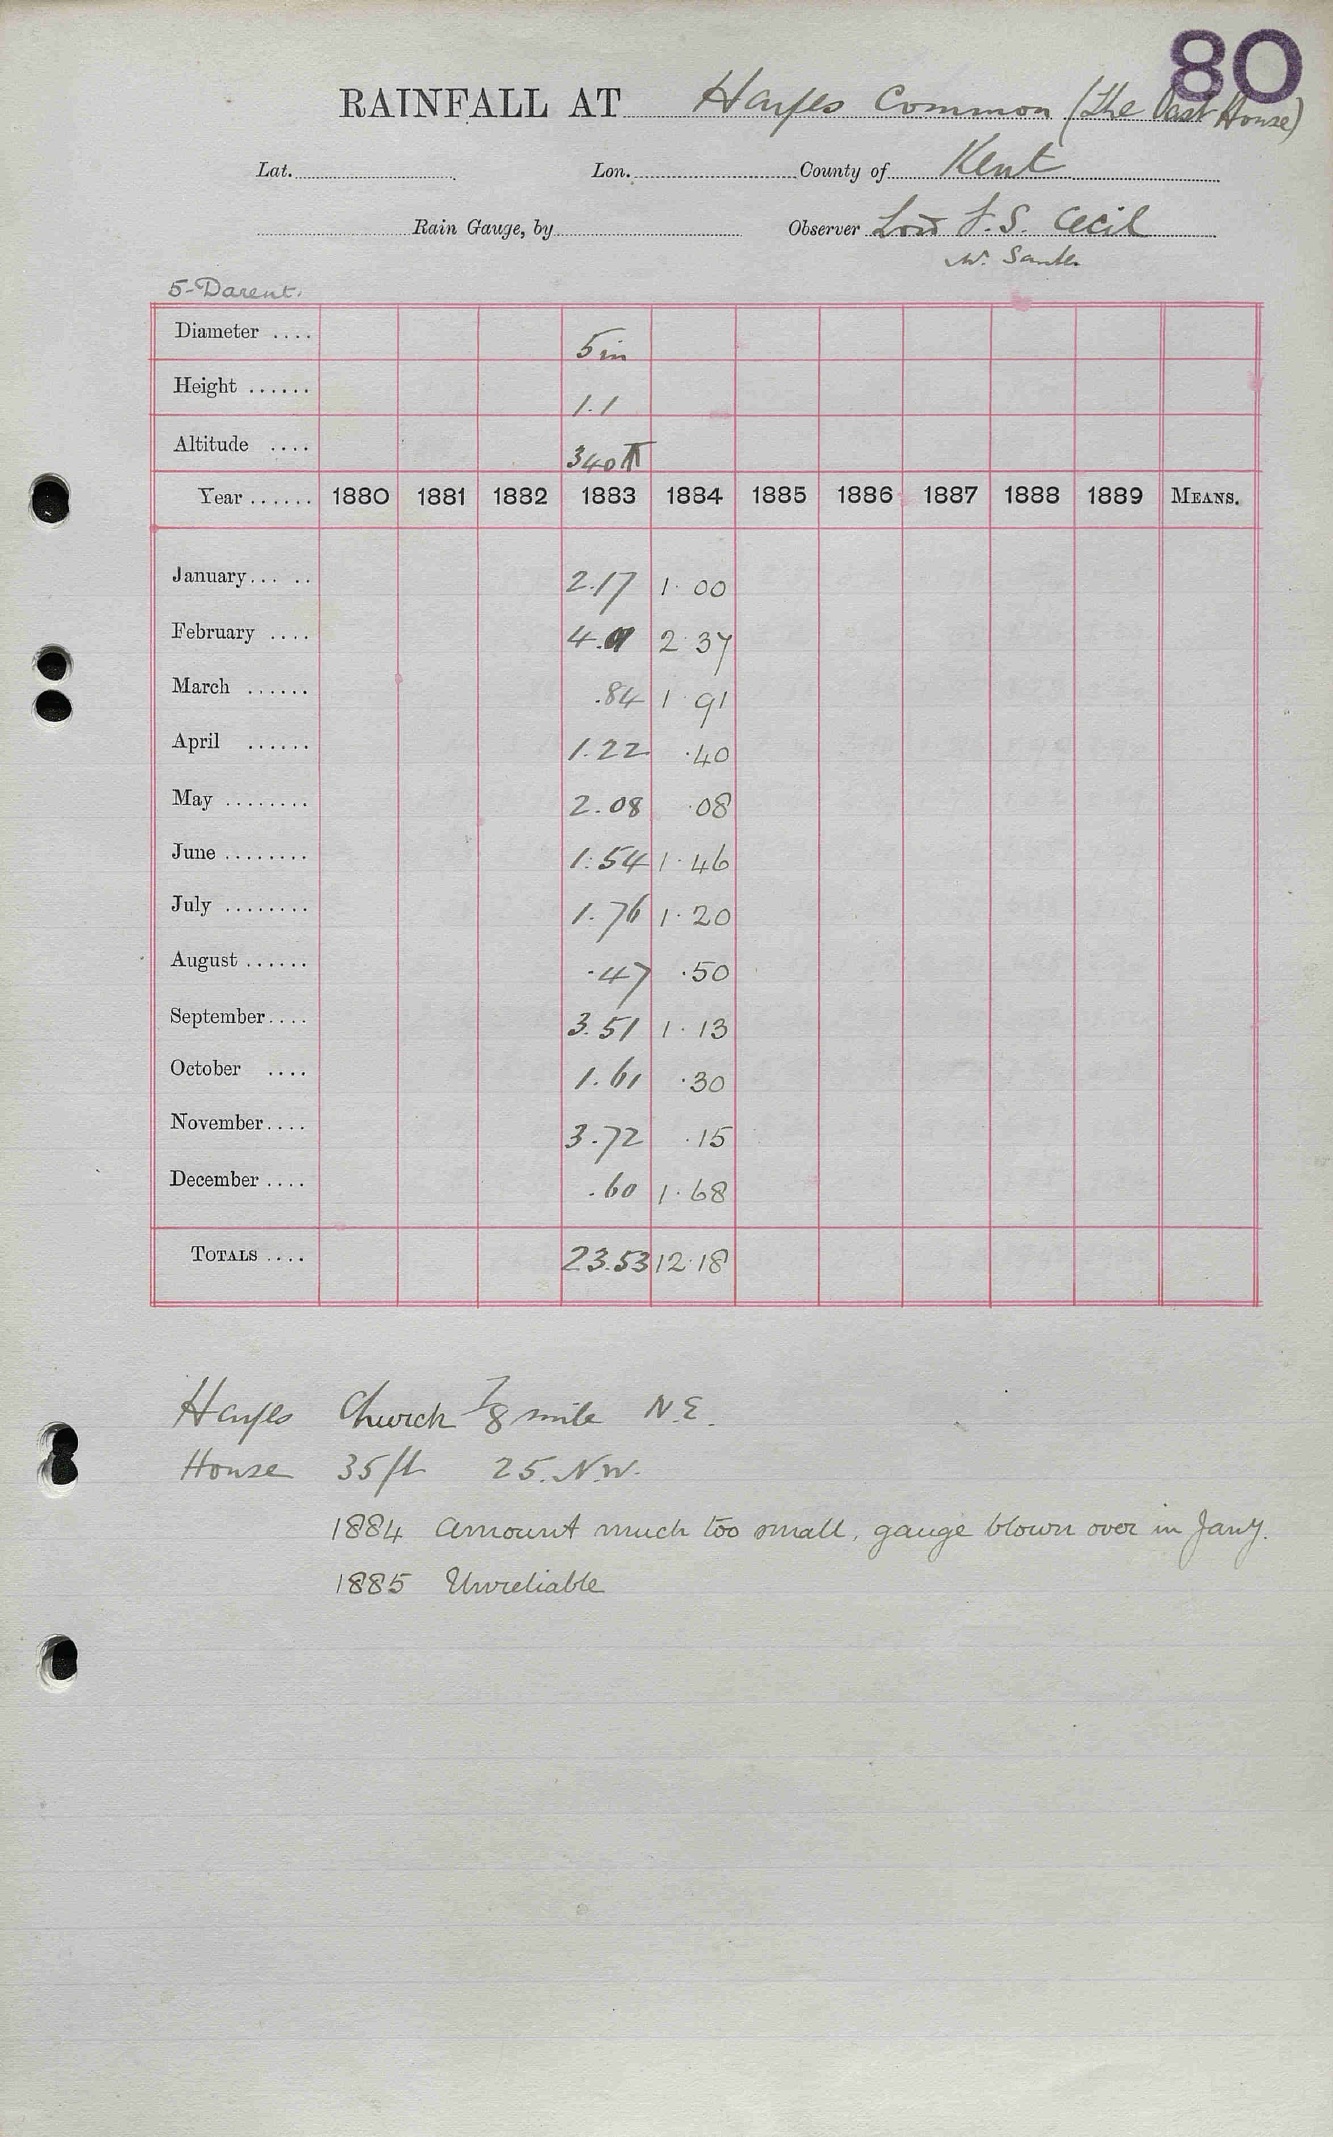 80
RAINFALL AT Hayes Common (The Oast House)
Lat. Lon. County of Kent
Rain Gauge, by Observer Lord L. S. Cecil
5-Darent.
Diameter .... 5 in
Height ...... 1.1
Altitude .... 340 ft
Year ...... 1880 1881 1882 1883 1884 1885 1886 1887 1888 1889 MEANS.
January... .. 2.17 1.00
February .... 4.01 2.37
March ...... .84 1.91
April ...... 1.22 .40
May ........ 2.08 .08
June ........ 1.54 1.46
July ........ 1.76 1.20
August ...... .47 .50
September.... 3.51 1.13
October .... 1.61 .30
November.... 3.72 .15
December .... .60 1.68
TOTALS .... 23.53 12.18
Hayes Church 7/8 mile N.E.
House 35 ft 25. N.W.
1884 Amount much too small, gauge blown over in Jany.
1885 Unreliable